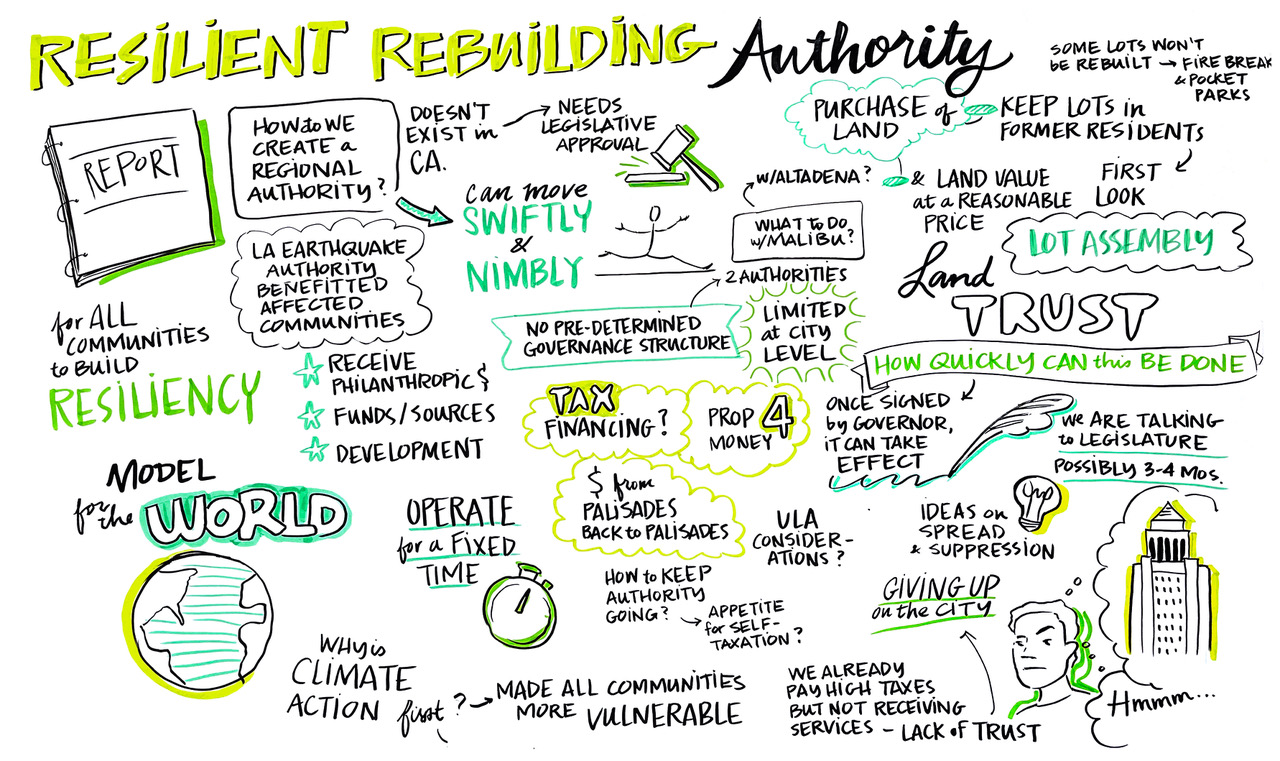 RESILIENT REBUILDING Authority
SOME LOTS WON'T
BE REBUILT → FIRE BREAK
& POCKET
PARKS
REPORT
HOW to WE
CREATE a
REGIONAL
AUTHORITY?
DOESN'T
EXIST in
CA.
NEEDS
LEGISLATIVE
APPROVAL
PURCHASE of
LAND
KEEP LOTS in
FORMER RESIDENTS
FIRST
LOOK
& LAND VALUE
at a REASONABLE
PRICE
LOT ASSEMBLY
can move
SWIFTLY
&
NIMBLY
W/ALTADENA?
WHAT to DO
W/MALIBU?
2 AUTHORITIES
LA EARTHQUAKE
AUTHORITY
BENEFITTED
AFFECTED
COMMUNITIES
NO PRE-DETERMINED
GOVERNANCE STRUCTURE
LIMITED
at CITY
LEVEL
Land
TRUST
HOW QUICKLY CAN this BE DONE
for ALL
COMMUNITIES
to BUILD
RESILIENCY
RECEIVE
PHILANTHROPIC $
FUNDS/SOURCES
DEVELOPMENT
TAX
FINANCING?
PROP 4
MONEY
ONCE SIGNED
by GOVERNOR,
iT CAN TAKE
EFFECT
WE ARE TALKING
to LEGISLATURE
POSSIBLY 3-4 MOS.
MODEL
for the WORLD
OPERATE
for a FIXED
TIME
$ from
PALISADES
BACK to PALISADES
ULA
CONSIDER-
ATIONS?
IDEAS on
SPREAD
& SUPPRESSION
HOW to KEEP
AUTHORITY
GOING?
APPETITE
for SELF-
TAXATION?
GIVING UP
on the CITY
WHY is
CLIMATE
ACTION
first? → MADE ALL COMMUNITIES
MORE VULNERABLE
WE ALREADY
PAY HIGH TAXES
BUT NOT RECEIVING
SERVICES - LACK of TRUST
Hmmm...